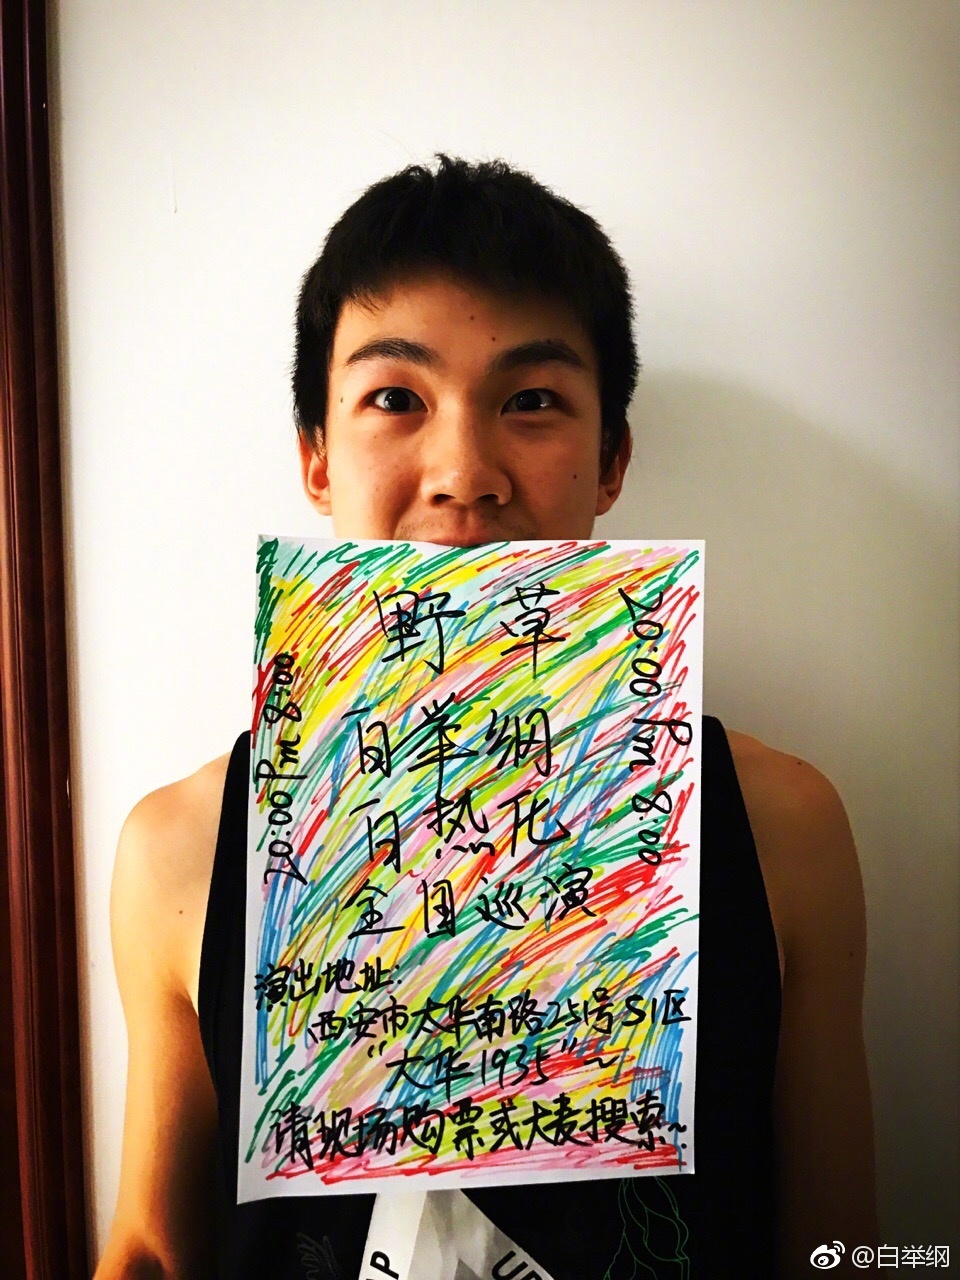 野草
白举纲
白热化
全国巡演
20:00 Pm 8:00
20:00 Pm 8:00
演出地址:
西安市太华南路251号S1区
"大华1935"~
请现场购票或大麦搜索~
UP
UP
@白举纲